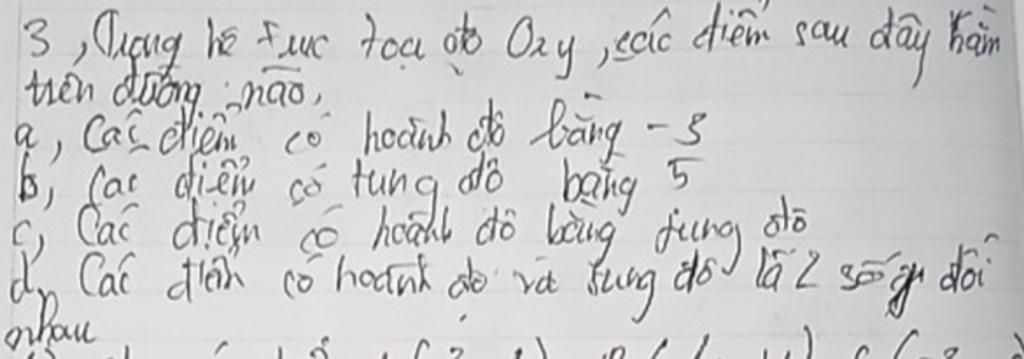 3, Trong hệ trục toạ độ Oxy, các điểm sau đây nằm
trên đường nào,
a, Các điểm có hoành độ bằng -3
b, Các điểm có tung độ bằng 5
c, Các điểm có hoành độ bằng tung độ
d, Các điểm có hoành độ và tung độ là 2 số đối
nhau